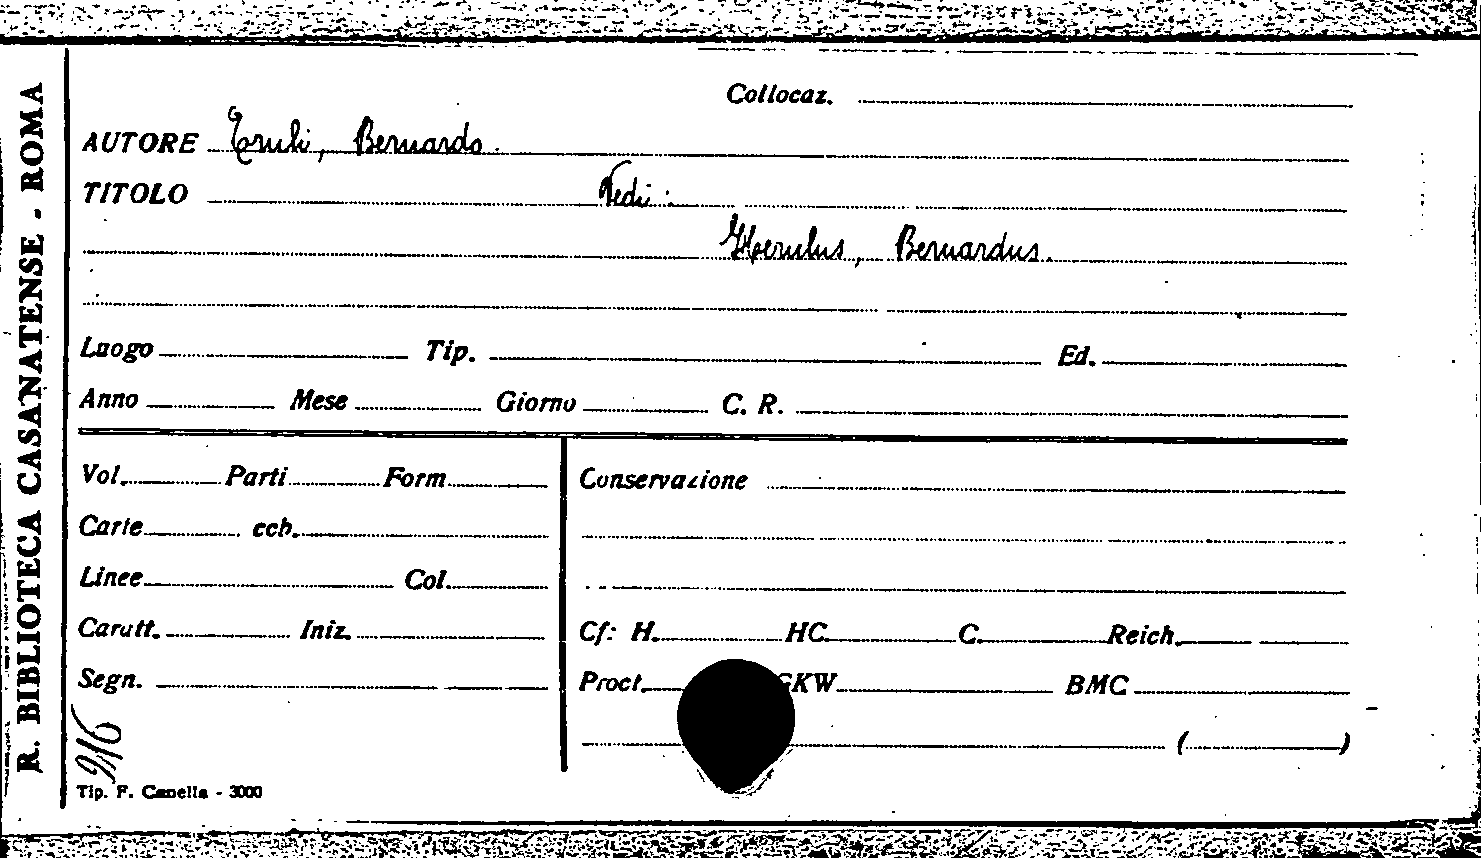 R. BIBLIOTECA CASANATENSE - ROMA
Collocaz.
AUTORE Eruli, Bernardo.
TITOLO Vedi:
Herulus, Bernardus.
Luogo Tip. Ed.
Anno Mese Giorno C. R.
Vol. Parti Form.
Carte ccb.
Linee Col.
Caratt. Iniz.
Segn.
Conservazione
Cf: H. HC. C. Reich.
Proct. GKW BMC
( )
916
Tip. F. Canella - 3000